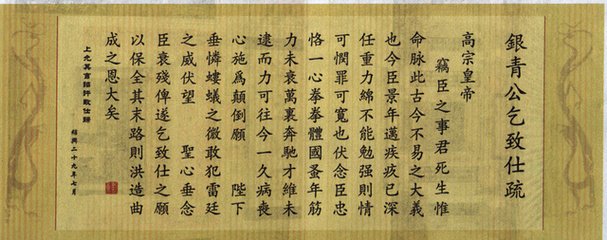 銀青公乞致仕疏
高宗皇帝
竊臣之事君死生惟
命脈此古今不易之大義
也今臣景年邁疾疚已深
任重力綿不能勉强則情
可憫罪可寬也伏念臣忠
恪一心拳拳體國蚤年筋
力未衰萬裏奔馳才維未
逮而力可往今一久病喪
心施為顛倒願 陛下
垂憐螻蟻之微敢犯雷霆
之威伏望 聖心垂念
臣衰殘俾遂乞致仕之願
以保全其末路則洪造曲
成之恩大矣
上允其言詔許致仕歸
紹興二十九年七月